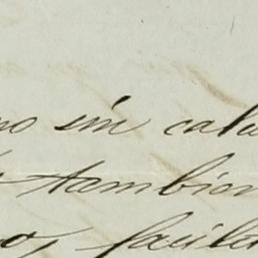 no sin cala
tambien
o, facilit